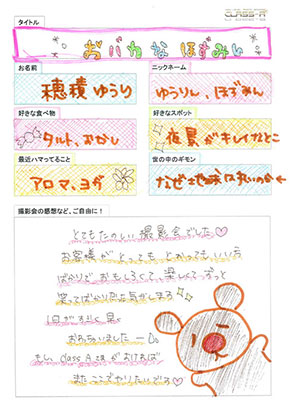 CLASS-A
タイトル
おバカなほずみん
お名前
ニックネーム
穂積ゆうり
ゆうりん、ほずみん
好きな食べ物
好きなスポット
タルト、おむし
夜景がキレイなとこ
最近ハマってること
世の中のギモン
アロマ、ヨガ
なぜ地球は丸いのか
撮影会の感想など、ご自由に！
とてもたのしい撮影会でした♡
お客様がとっても とかっても いい方
ばかりで おもしろくて、楽しくて ずっと
笑ってばかりだった気がします
1日がすごく早く
おわっちゃいました
もし、Class A さまがよければ
またここでやりたいです♡